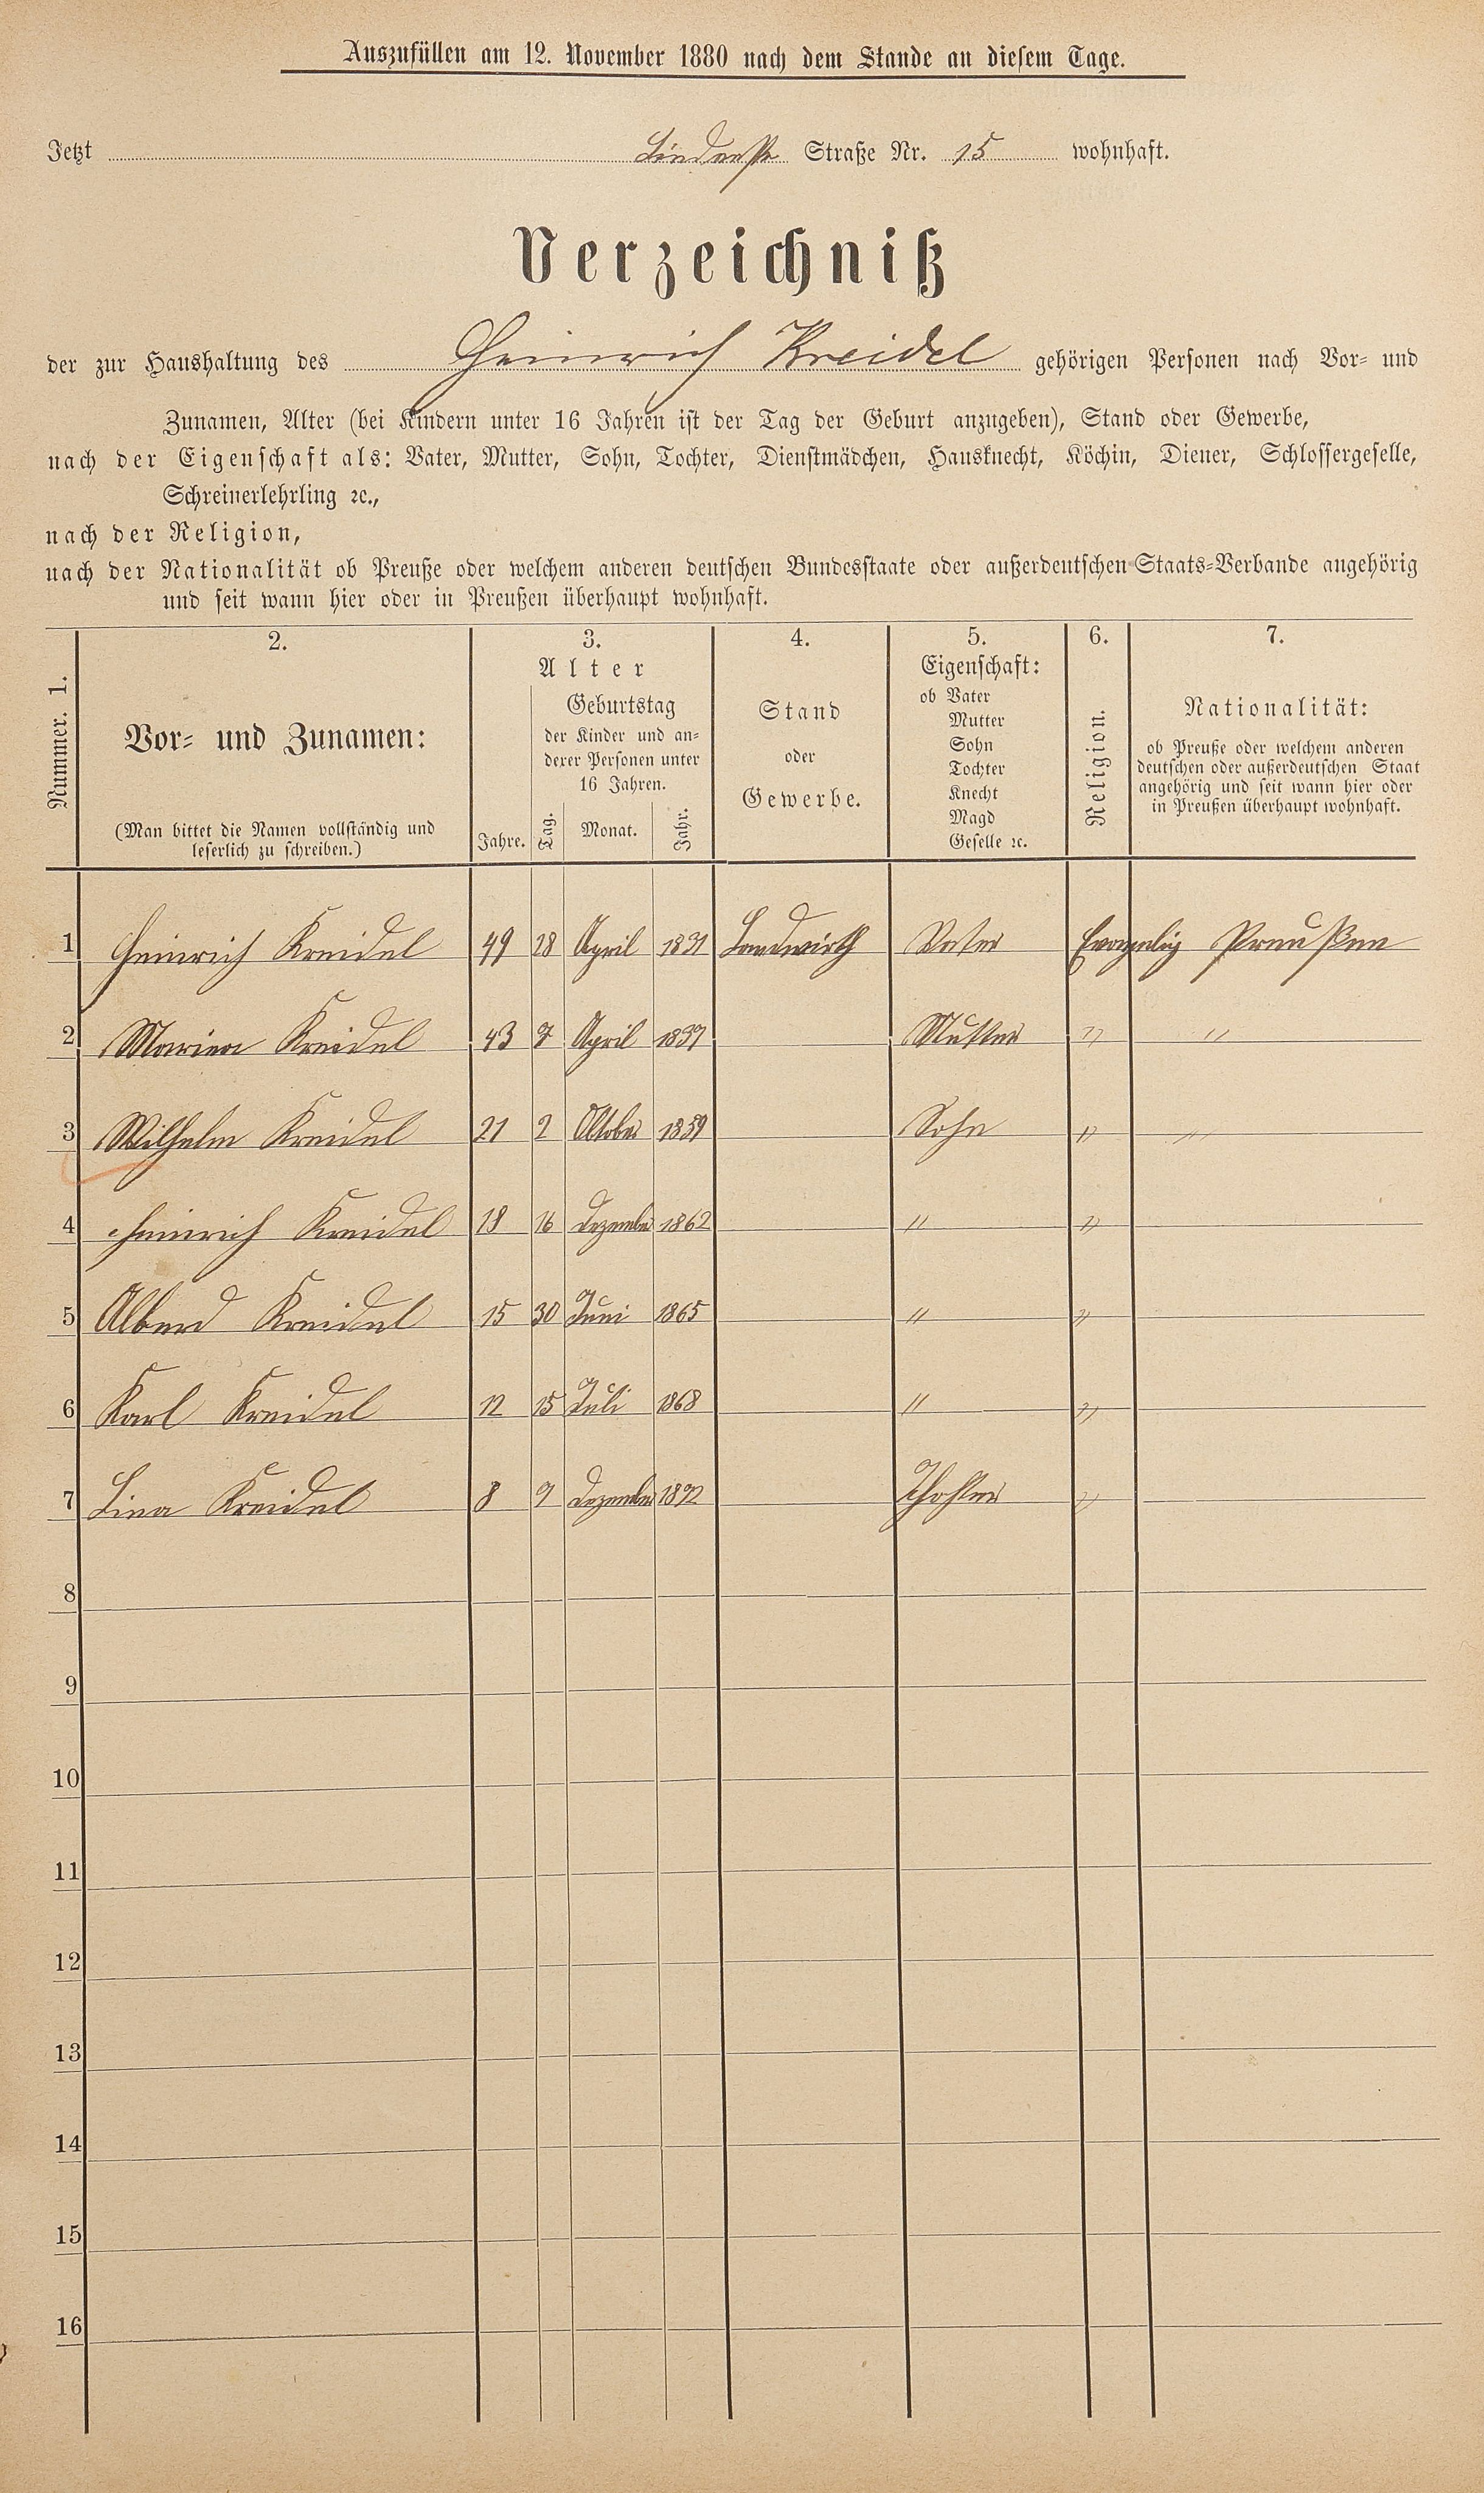 Auszufüllen am 12. November 1880 nach dem Stande an diesem Tage.
Jetzt Straße Nr. 15 wohnhaft.
Verzeichniß
der zur Haushaltung des Heinrich Kreidel gehörigen Personen nach Vor- und
Zunamen, Alter (bei Kindern unter 16 Jahren ist der Tag der Geburt anzugeben), Stand oder Gewerbe,
nach der Eigenschaft als: Vater, Mutter, Sohn, Tochter, Dienstmädchen, Hausknecht, Köchin, Diener, Schlossergeselle,
Schreinerlehrling ꝛc.,
nach der Religion,
nach der Nationalität ob Preuße oder welchem anderen deutschen Bundesstaate oder außerdeutschen Staats-Verbande angehörig
und seit wann hier oder in Preußen überhaupt wohnhaft.
Nummer. 1.
2.
Vor- und Zunamen:
(Man bittet die Namen vollständig und
leserlich zu schreiben.)
3.
Alter
Jahre.
Geburtstag
der Kinder und an-
derer Personen unter
16 Jahren.
Tag. Monat. Jahr.
4.
Stand
oder
Gewerbe.
5.
Eigenschaft:
ob Vater
Mutter
Sohn
Tochter
Knecht
Magd
Geselle ꝛc.
6.
Religion.
7.
Nationalität:
ob Preuße oder welchem anderen
deutschen oder außerdeutschen Staat
angehörig und seit wann hier oder
in Preußen überhaupt wohnhaft.
1 Heinrich Kreidel 49 18 April 1831 Landwirth Vater Evangelig Preußen
2 Kreidel 43 7 April 1837 Mutter " "
3 Wilhelm Kreidel 21 2 Oktober 1859 Sohn " "
4 Heinrich Kreidel 18 16 Dezember 1862 " "
5 Alberd Kreidel 15 30 Juni 1865 " "
6 Karl Kreidel 12 15 Juli 1868 " "
7 Lina Kreidel 8 9 Dezember 1872 Thochter "
8
9
10
11
12
13
14
15
16